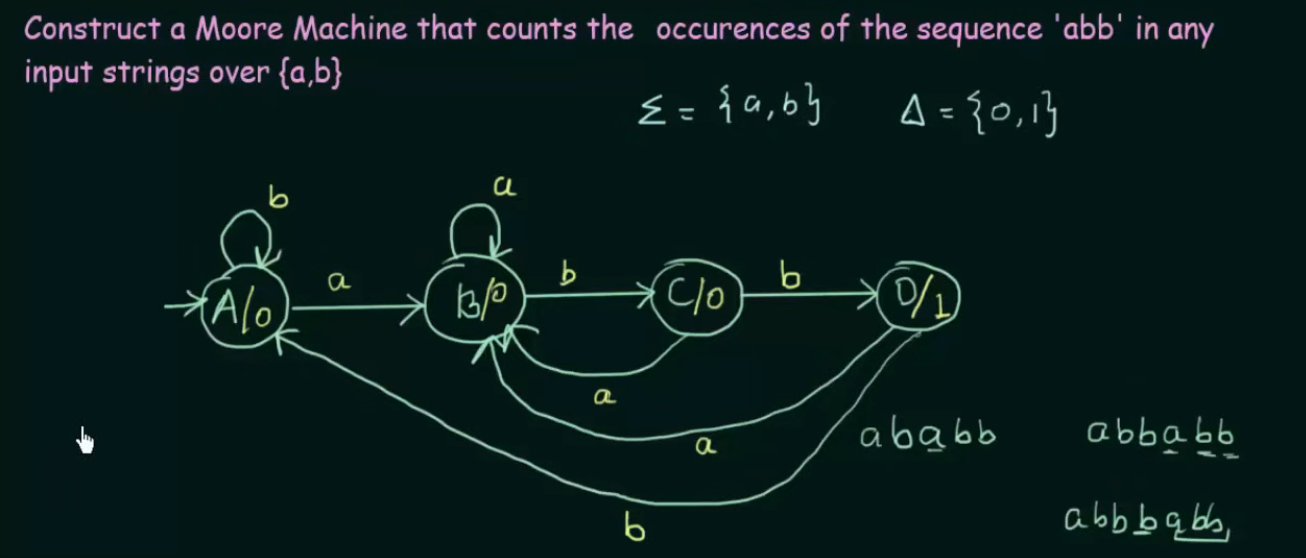 Construct a Moore Machine that counts the occurences of the sequence 'abb' in any
input strings over {a,b}
Σ = {a,b} Δ = {0,1}
b a
a b b
A/0 B/0 C/0 D/1
a
a
b
ababb abbabb
abbbabb,